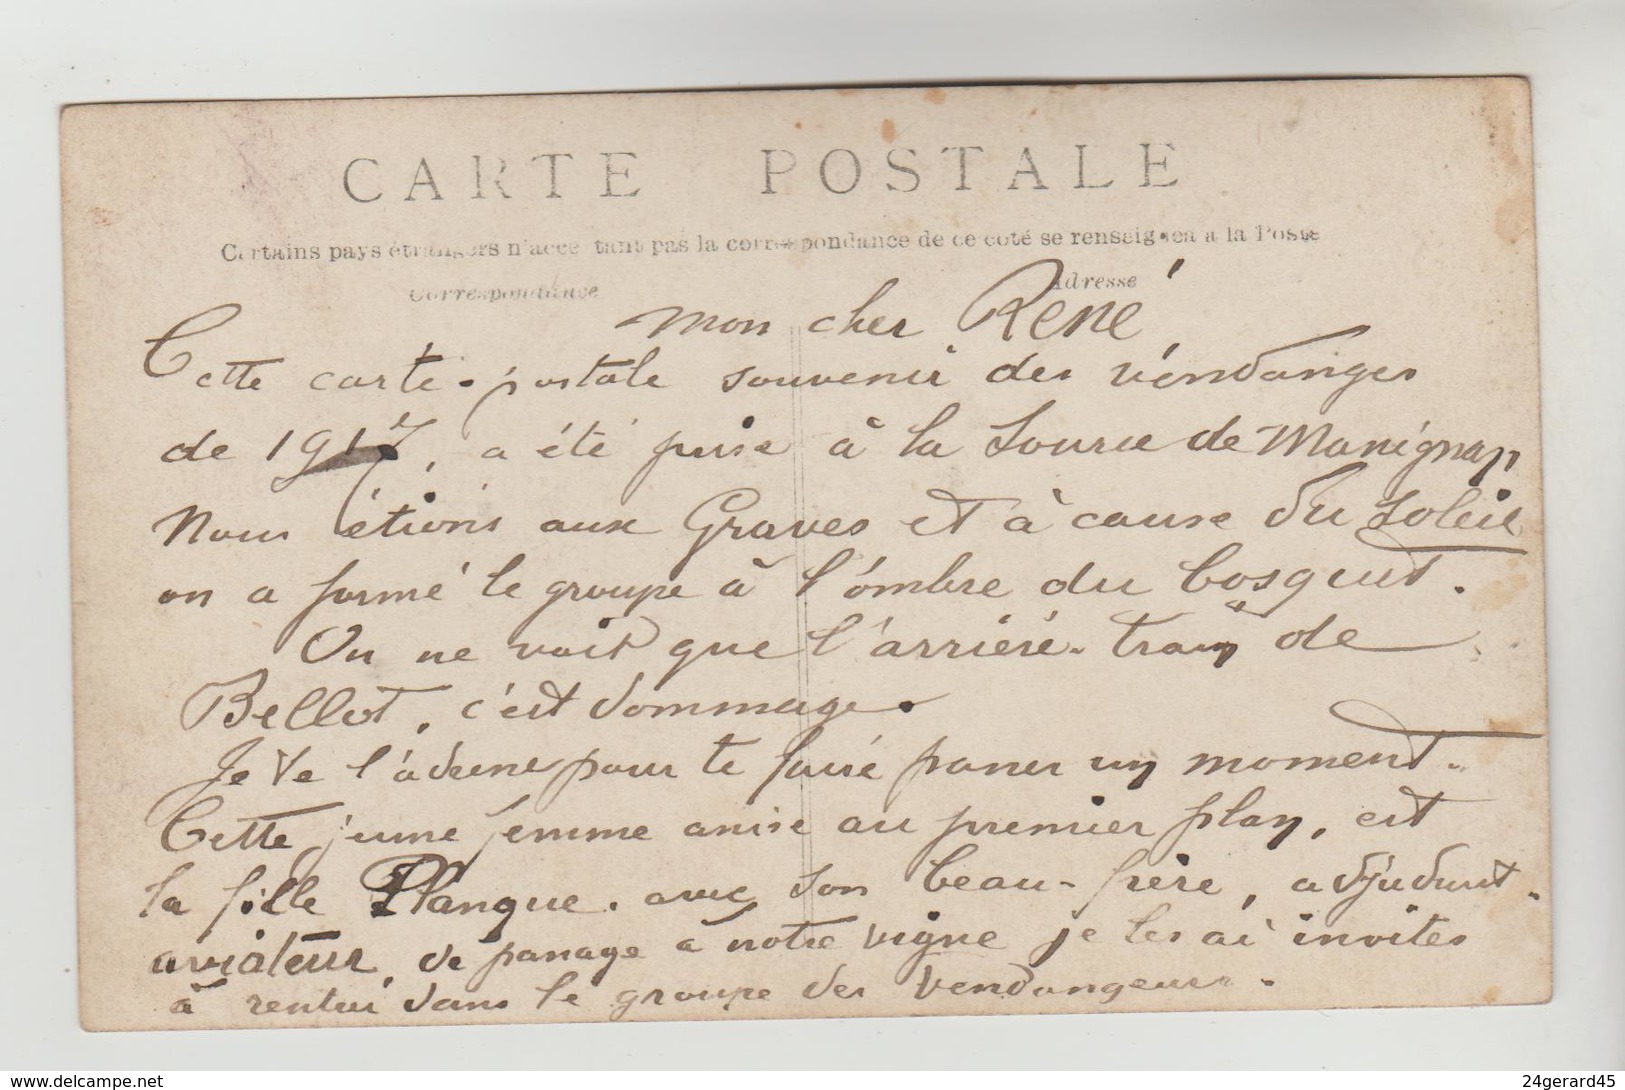 CARTE POSTALE
Certains pays étrangers n'acceptant pas la correspondance de ce côté se renseigner à la Poste
Correspondance
Adresse
mon cher René
Cette carte-postale souvenir des vendanges
de 1917, a été prise à la source de Manignan,
Nous étions aux Graves et à cause du soleil
on a formé le groupe à l'ombre du bosquet.
On ne voit que l'arrière-train de
Bellot, c'est dommage.
Je te l'adresse pour te faire passer un moment.
Cette jeune femme assise au premier plan, est
la fille Planque. avec son beau-frère, adjudant-
aviateur, de passage à notre vigne je les ai invités
à rentrer dans le groupe des vendangeurs.
www.delcampe.net
24gerard45